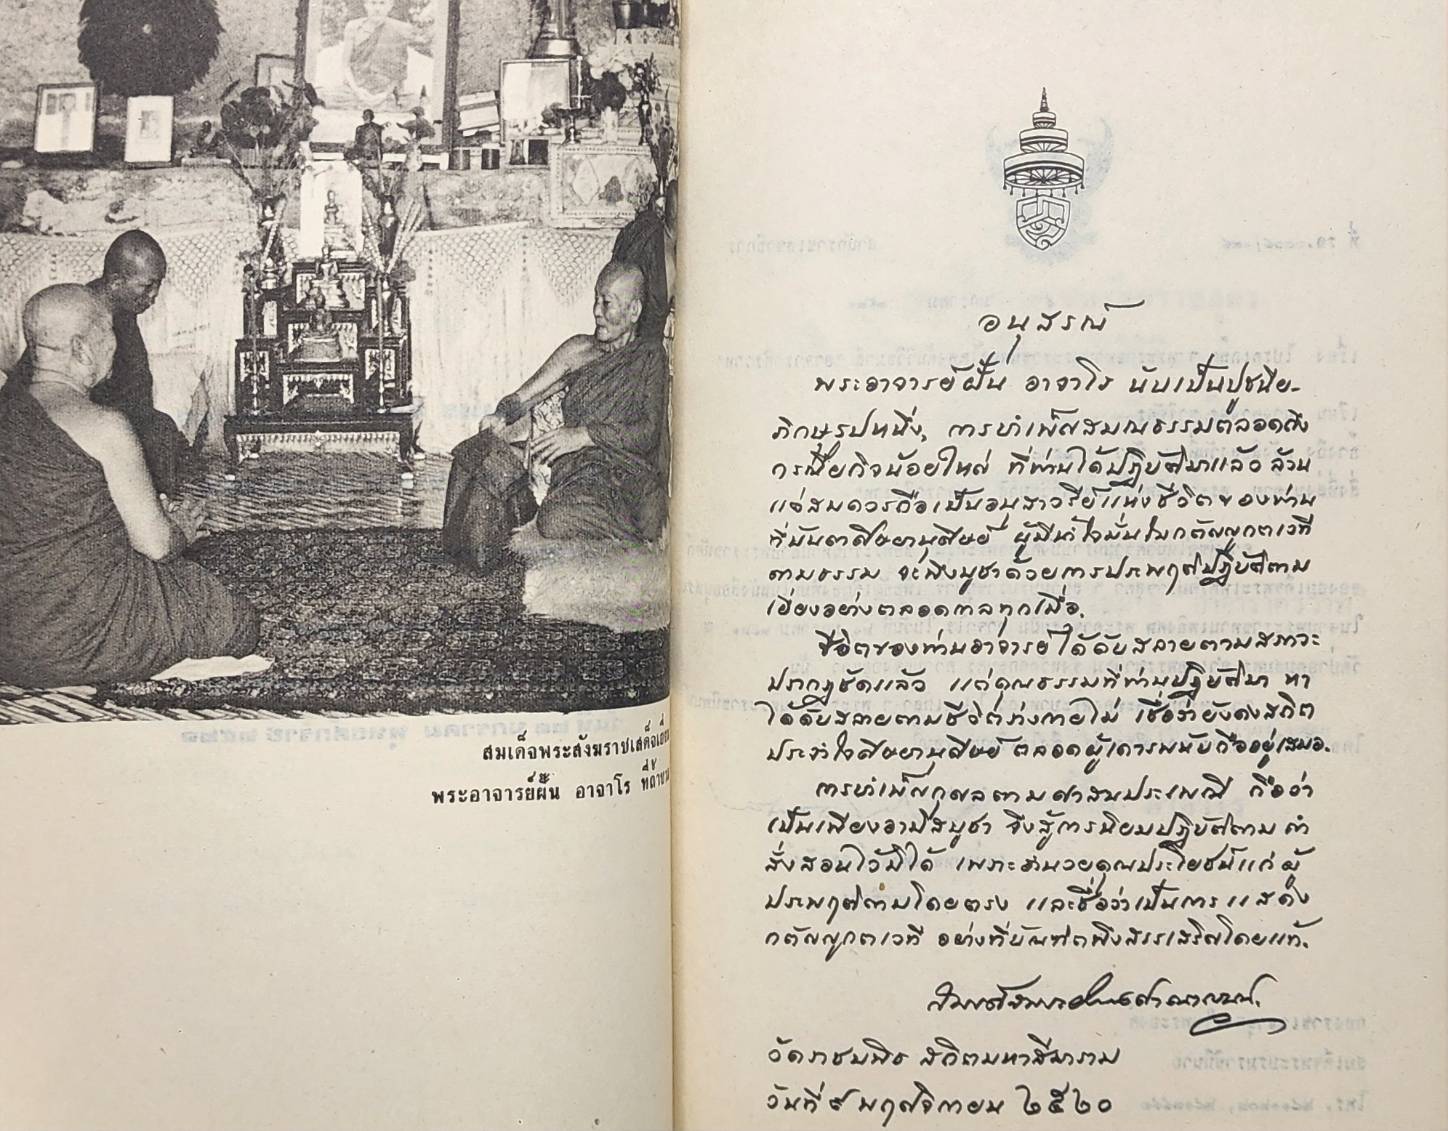 สมเด็จพระสังฆราชเสด็จเยี่ยม
พระอาจารย์ฝั้น อาจาโร ที่ถ้ำขาม
อนุสรณ์
พระอาจารย์ฝั้น อาจาโร นับเป็นปูชนีย-
ภิกษุรูปหนึ่ง, การบำเพ็ญสมณธรรมตลอดถึง
กรณียกิจน้อยใหญ่ ที่ท่านได้ปฏิบัติมาแล้ว ล้วน
แต่สมควรถือเป็นอนุสาวรีย์แห่งชีวิตของท่าน
ที่บันดาศิษยานุศิษย์ ผู้มีน้ำใจมั่นในกตัญญูกตเวที
ตามธรรม จะพึงบูชาด้วยการประพฤติปฏิบัติตาม
เยี่ยงอย่างตลอดกาลทุกเมื่อ.
ชีวิตของท่านอาจารย์ได้ดับสลายตามสภาวะ
ปรากฏชัดแล้ว แต่คุณธรรมที่ท่านปฏิบัติมา หา
ได้ดับสลายตามชีวิตร่างกายไม่ เชื่อว่ายังคงสถิต
ประจำใจศิษยานุศิษย์ ตลอดผู้เคารพนับถืออยู่เสมอ.
การบำเพ็ญกุศลตามศาสนประเพณี ถือว่า
เป็นเพียงอามิสบูชา จึงสู้การนิยมปฏิบัติตาม คำ
สั่งสอนไว้มิได้ เพราะอำนวยคุณประโยชน์แก่ ผู้
ประพฤติตามโดยตรง และชื่อว่าเป็นการ แสดง
กตัญญูกตเวที อย่างที่บัณฑิตพึงสรรเสริญโดยแท้.
วัดราชบพิธ สถิตมหาสีมาราม
วันที่ ๙ พฤศจิกายน ๒๕๒๐